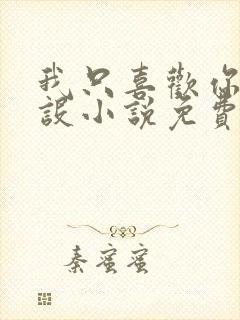 我只喜歡你
設小說免費
秦蜜蜜